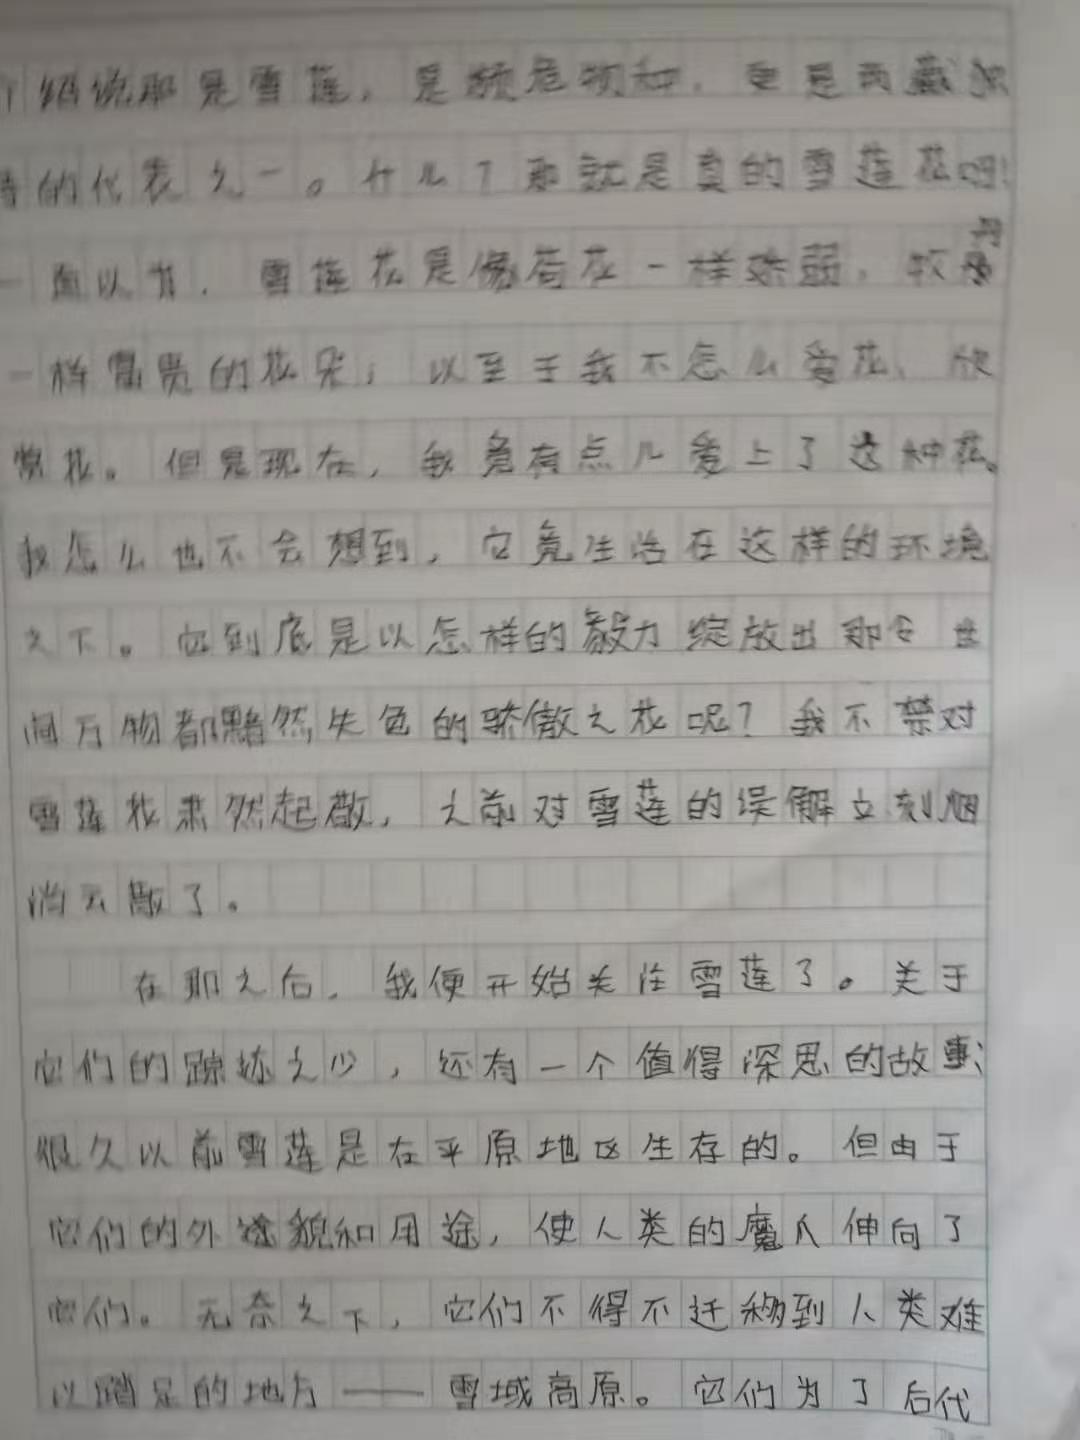 介绍说那是雪莲，是频危物种，更是西藏独
特的代表之一。什么？那就是真的雪莲花吗！
一直以为，雪莲花是像荷花一样娇弱，牡丹
一样富贵的花朵，以至于我不怎么爱花、欣
赏花。但是现在，我竟有点儿爱上了这种花。
我怎么也不会想到，它竟生活在这样的环境
之下。它到底是以怎样的毅力绽放出那令世
间万物都黯然失色的骄傲之花呢？我不禁对
雪莲花肃然起敬，之前对雪莲的误解立刻烟
消云散了。
在那之后，我便开始关注雪莲了。关于
它们的踪迹之少，还有一个值得深思的故事：
很久以前雪莲是在平原地区生存的。但由于
它们的外貌和用途，使人类的魔爪伸向了
它们。无奈之下，它们不得不迁移到人类难
以踏足的地方——雪域高原。它们为了后代